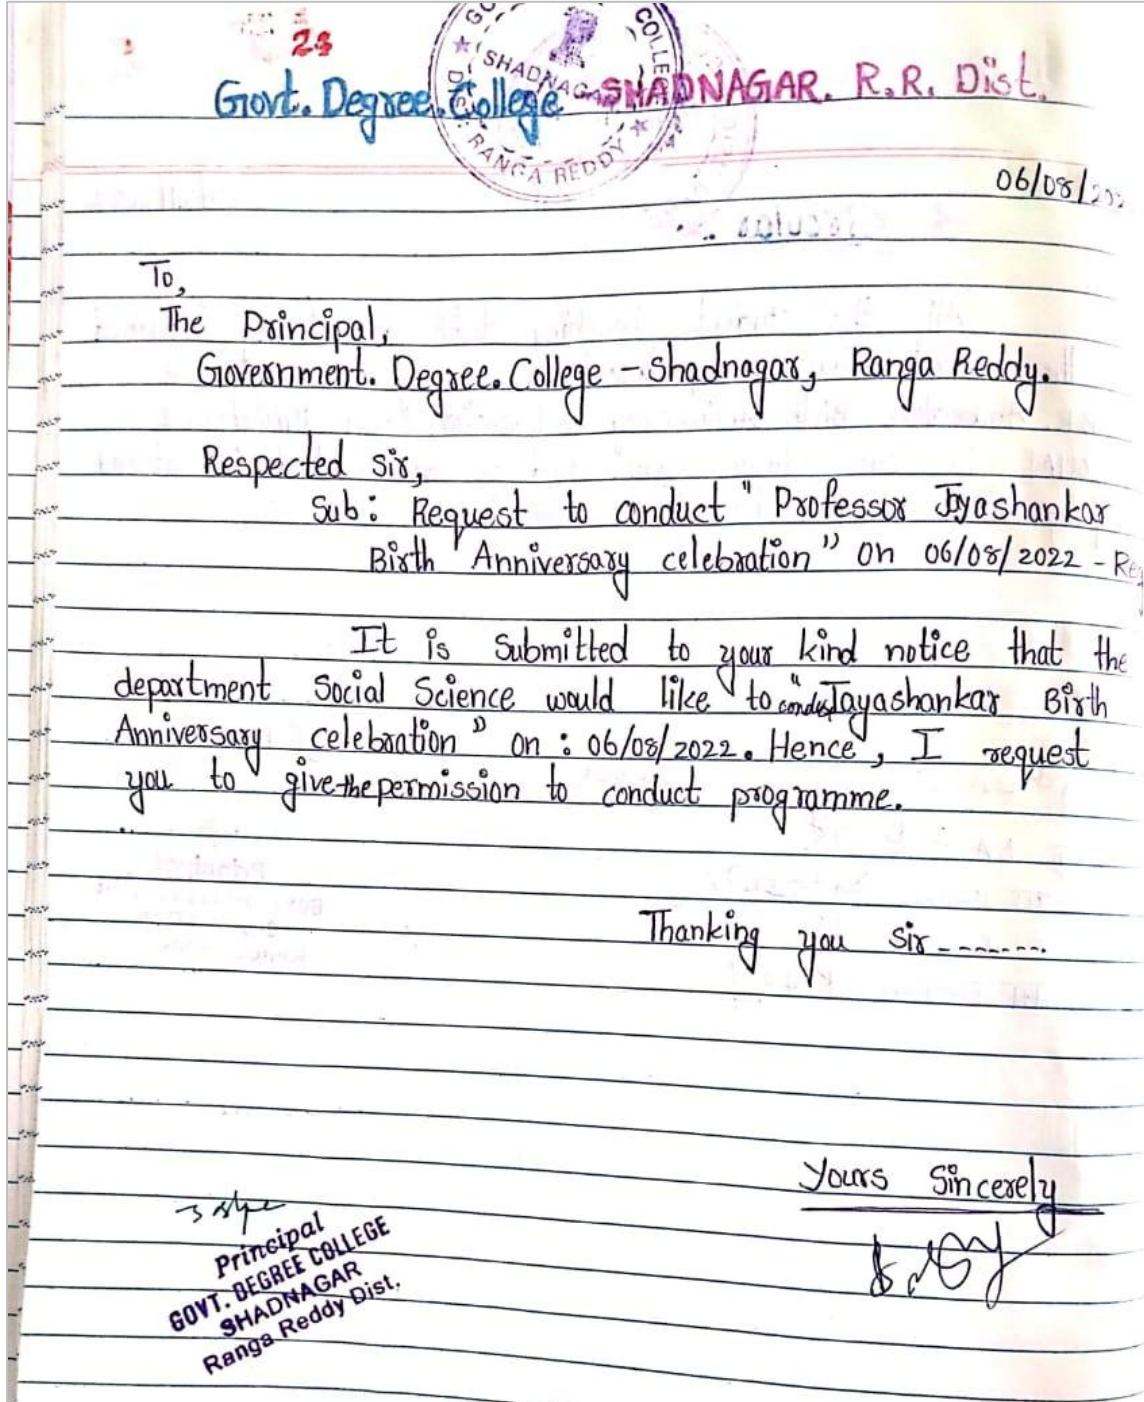 23
Govt. Degree. College SHADNAGAR. R.R. Dist.
SHADNAGAR
RANGA REDDY
06/08/202
To,
The Principal,
Government. Degree. College - Shadnagar, Ranga Reddy.
Respected Sir,
Sub: Request to conduct " Professor Jayashankar
Birth Anniversary celebration" on 06/08/2022 - Reg
It is submitted to your kind notice that the
department Social Science would like to conduct "Jayashankar Birth
Anniversary celebration" on : 06/08/2022. Hence, I request
you to give the permission to conduct programme.
Thanking you Sir-------
Yours Sincerely
Principal
GOVT. DEGREE COLLEGE
SHADNAGAR
Ranga Reddy Dist.